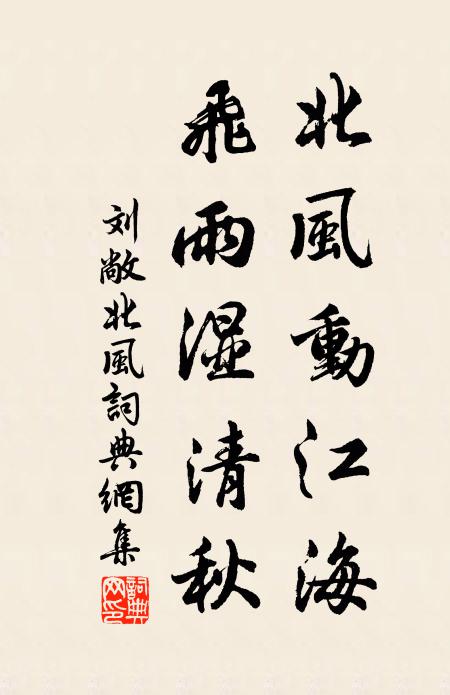 北風動江海
飛雨湿清秋
刘敞北風詞典網集
詞典網印